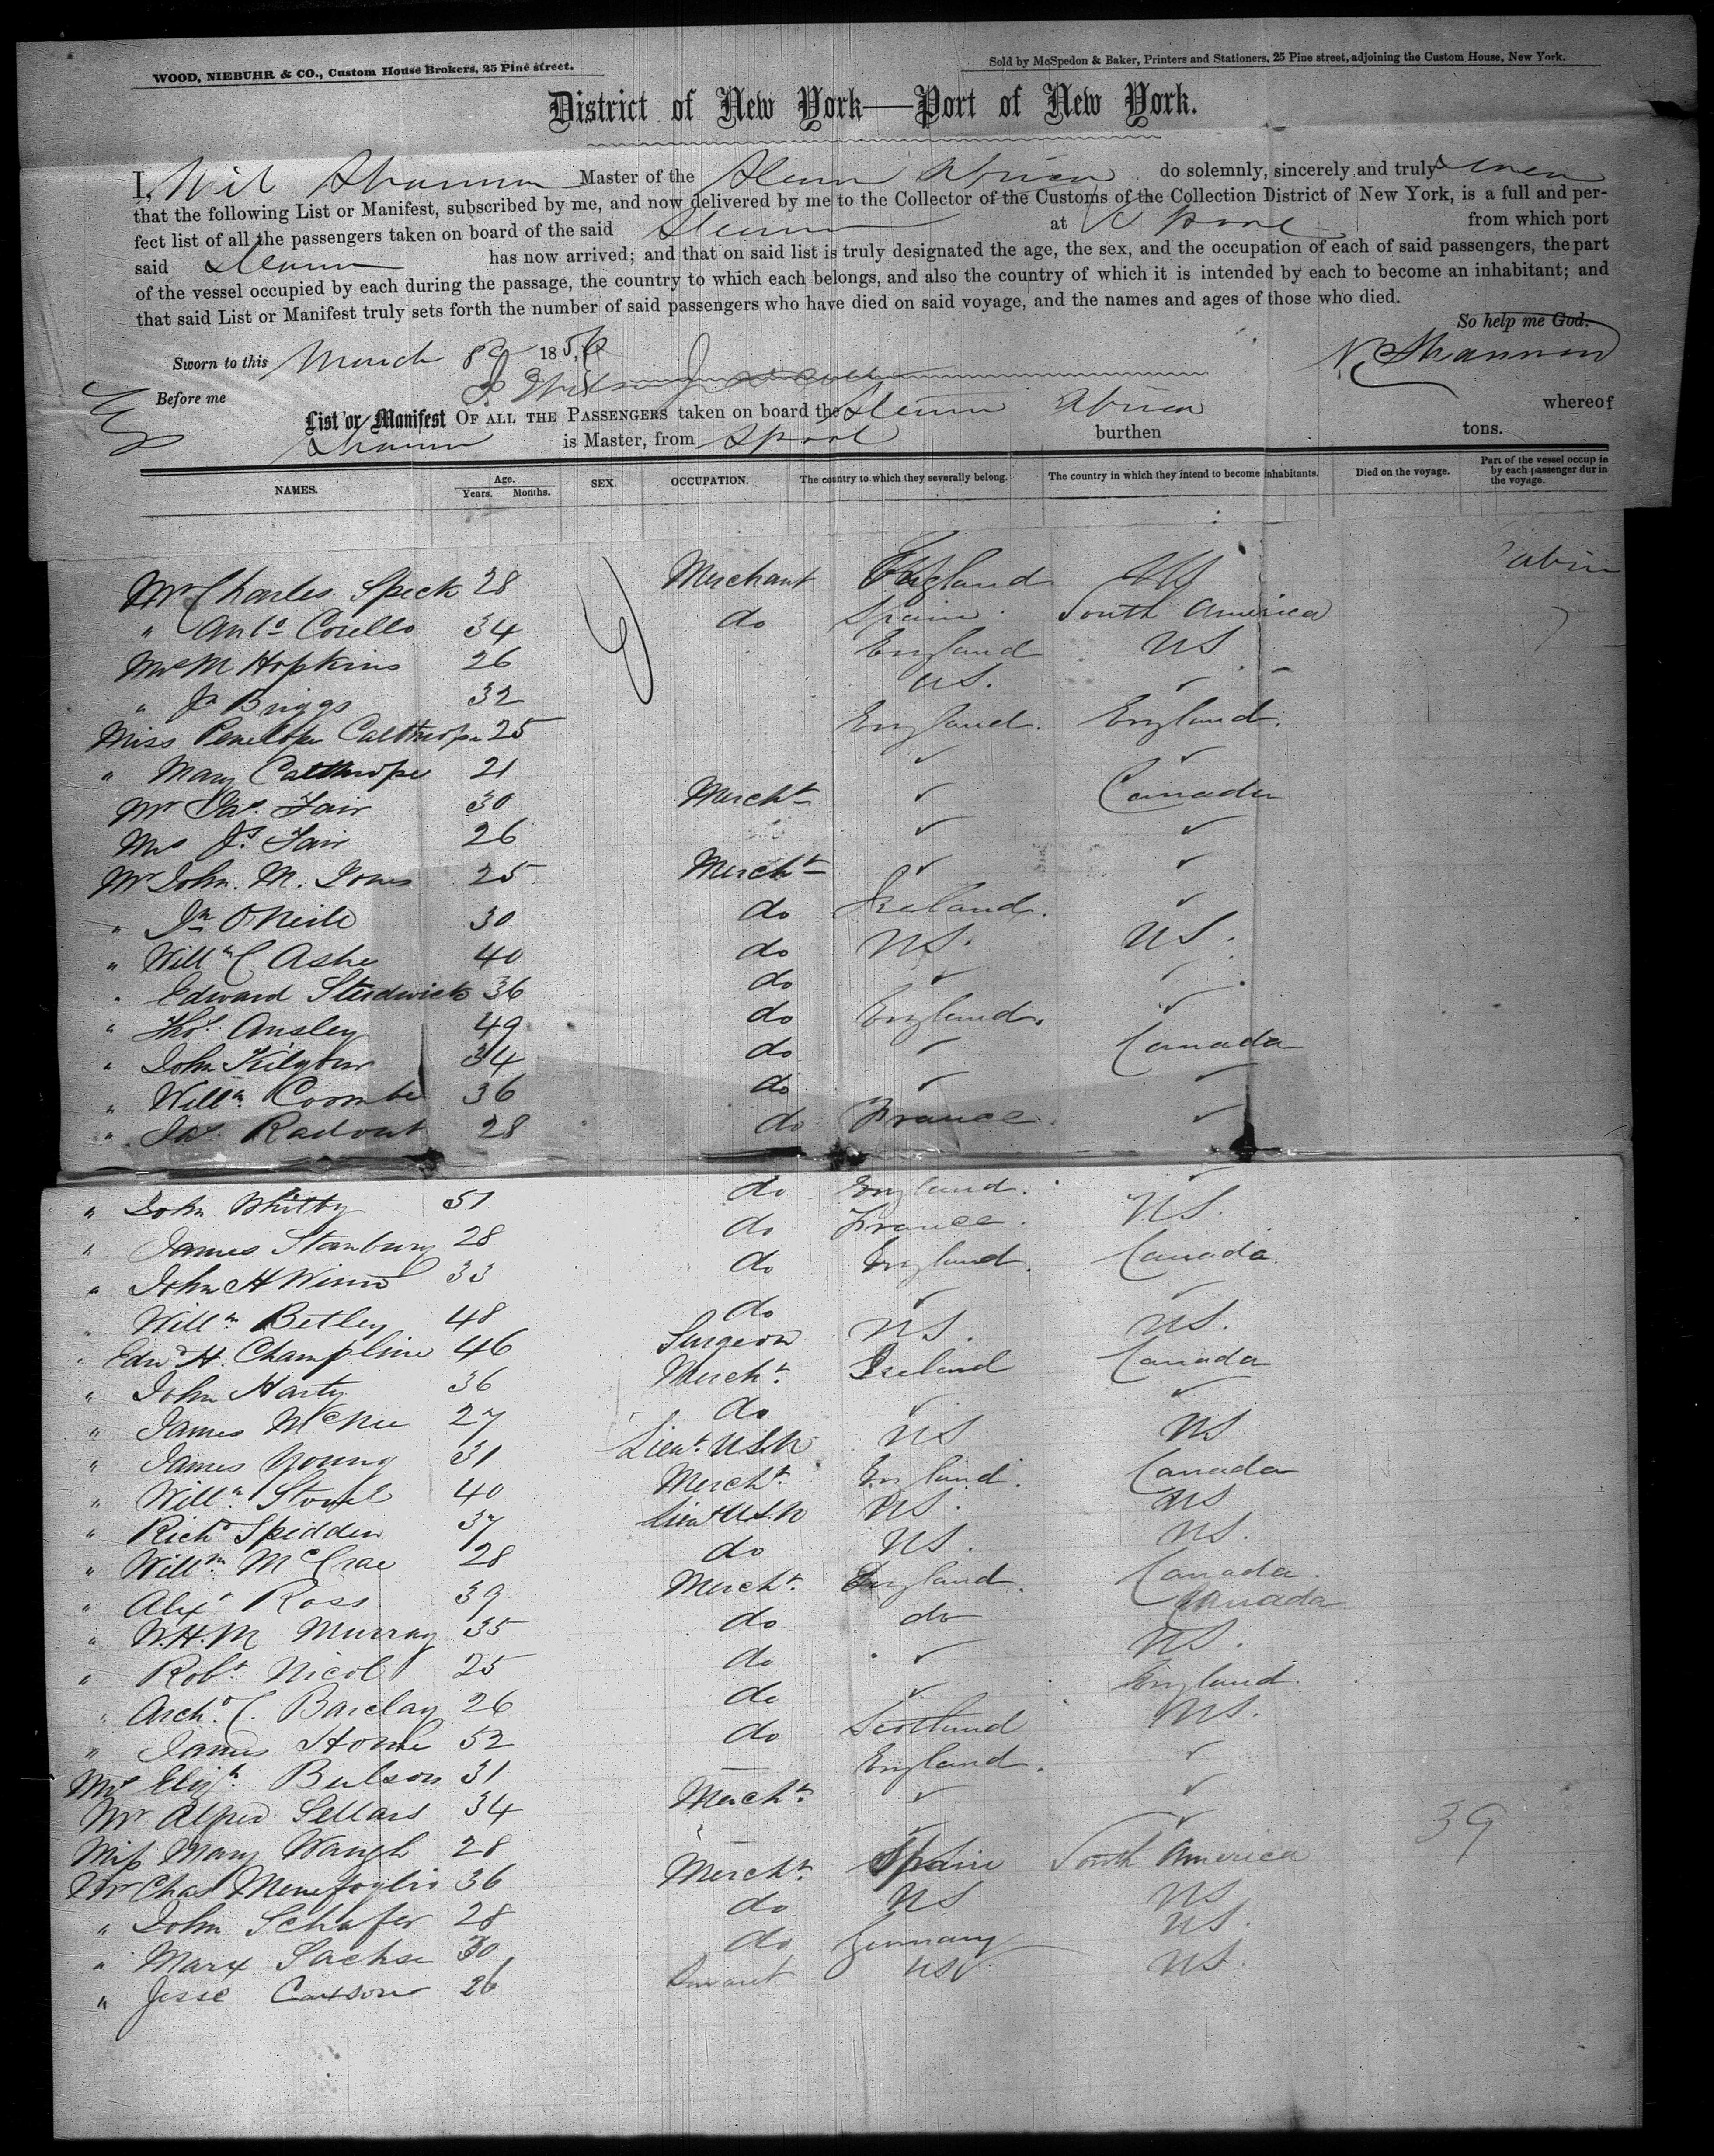 WOOD, NIEBUHR & CO., Custom House Brokers, 25 Pine street.
Sold by McSpedon & Baker, Printers and Stationers, 25 Pine street, adjoining the Custom House, New York.
District of New York—Port of New York.
I, Wil Shannon Master of the Steamr Africa do solemnly, sincerely and truly swear
that the following List or Manifest, subscribed by me, and now delivered by me to the Collector of the Customs of the Collection District of New York, is a full and per-
fect list of all the passengers taken on board of the said Steamr at L pool from which port
said Steamr has now arrived; and that on said list is truly designated the age, the sex, and the occupation of each of said passengers, the part
of the vessel occupied by each during the passage, the country to which each belongs, and also the country of which it is intended by each to become an inhabitant; and
that said List or Manifest truly sets forth the number of said passengers who have died on said voyage, and the names and ages of those who died.
So help me God.
Sworn to this March 8 1856 N. Shannon
Before me
List or Manifest OF ALL THE PASSENGERS taken on board the Steamr Africa whereof
Shannon is Master, from Lpool burthen tons.
NAMES. Age. Years. Months. SEX. OCCUPATION. The country to which they severally belong. The country in which they intend to become inhabitants. Died on the voyage. Part of the vessel occup ie by each passenger dur in the voyage.
Mr Charles Speck 28 Merchant England US Cabin
" Anto Corello 34 do Spain South America
Mrs M Hopkins 26 England US
" Jn Briggs 32 US. ✓
Miss Penelope Calthrope 25 England. England.
" Mary Calthrope 21 ✓ ✓
Mr Jas. Fair 30 Mercht ✓ Canada
Mrs Js. Fair 26 ✓ ✓
Mr John. M. Jones 25 Mercht ✓ ✓
" Jn O'Neile 30 do Ireland. ✓
" Willm C Ashe 40 do US. US.
" Edward Studwick 36 do ✓ ✓
" Thos. Ansley 49 do England. ✓
" John Kilgour 34 do ✓ Canada
" Willm Coombe 36 do ✓ ✓
" Jas. Radout 28 do France. ✓
" John Whitby 51 do England. ✓
" James Stanbury 28 do France. US.
" John H Winn 33 do England. Canada.
" Willm Betley 48 do ✓ ✓
" Edwd H. Champline 46 Surgeon US. US.
" John Harty 36 Mercht. Ireland Canada
" James McNee 27 do ✓ ✓
" James Young 31 Lieut. USN US US
" Willm. Stovel 40 Mercht. England. Canada
" Richd Spedden 37 Lieut USN US. US
" Willm McCrae 28 do US. US.
" Alexr Ross 39 Mercht. England. Canada.
" W.H.M Murray 35 do do Canada
" Robt. Nicol 25 do ✓ US.
" Archd. C. Barclay 26 do ✓ England.
" James Home 52 do Scotland US.
Mrs Elizth. Bulson 31 — England. ✓
Mr Alfred Sellars 34 Mercht. ✓ ✓
Miss Mary Waugh 28 — ✓ ✓
Mr Chas Menefoglio 36 Mercht. Spain South America
39
" John Schafer 28 do US US
" Marx Sachse 30 do Germany US.
" Jesse Carson 26 Servant US US.